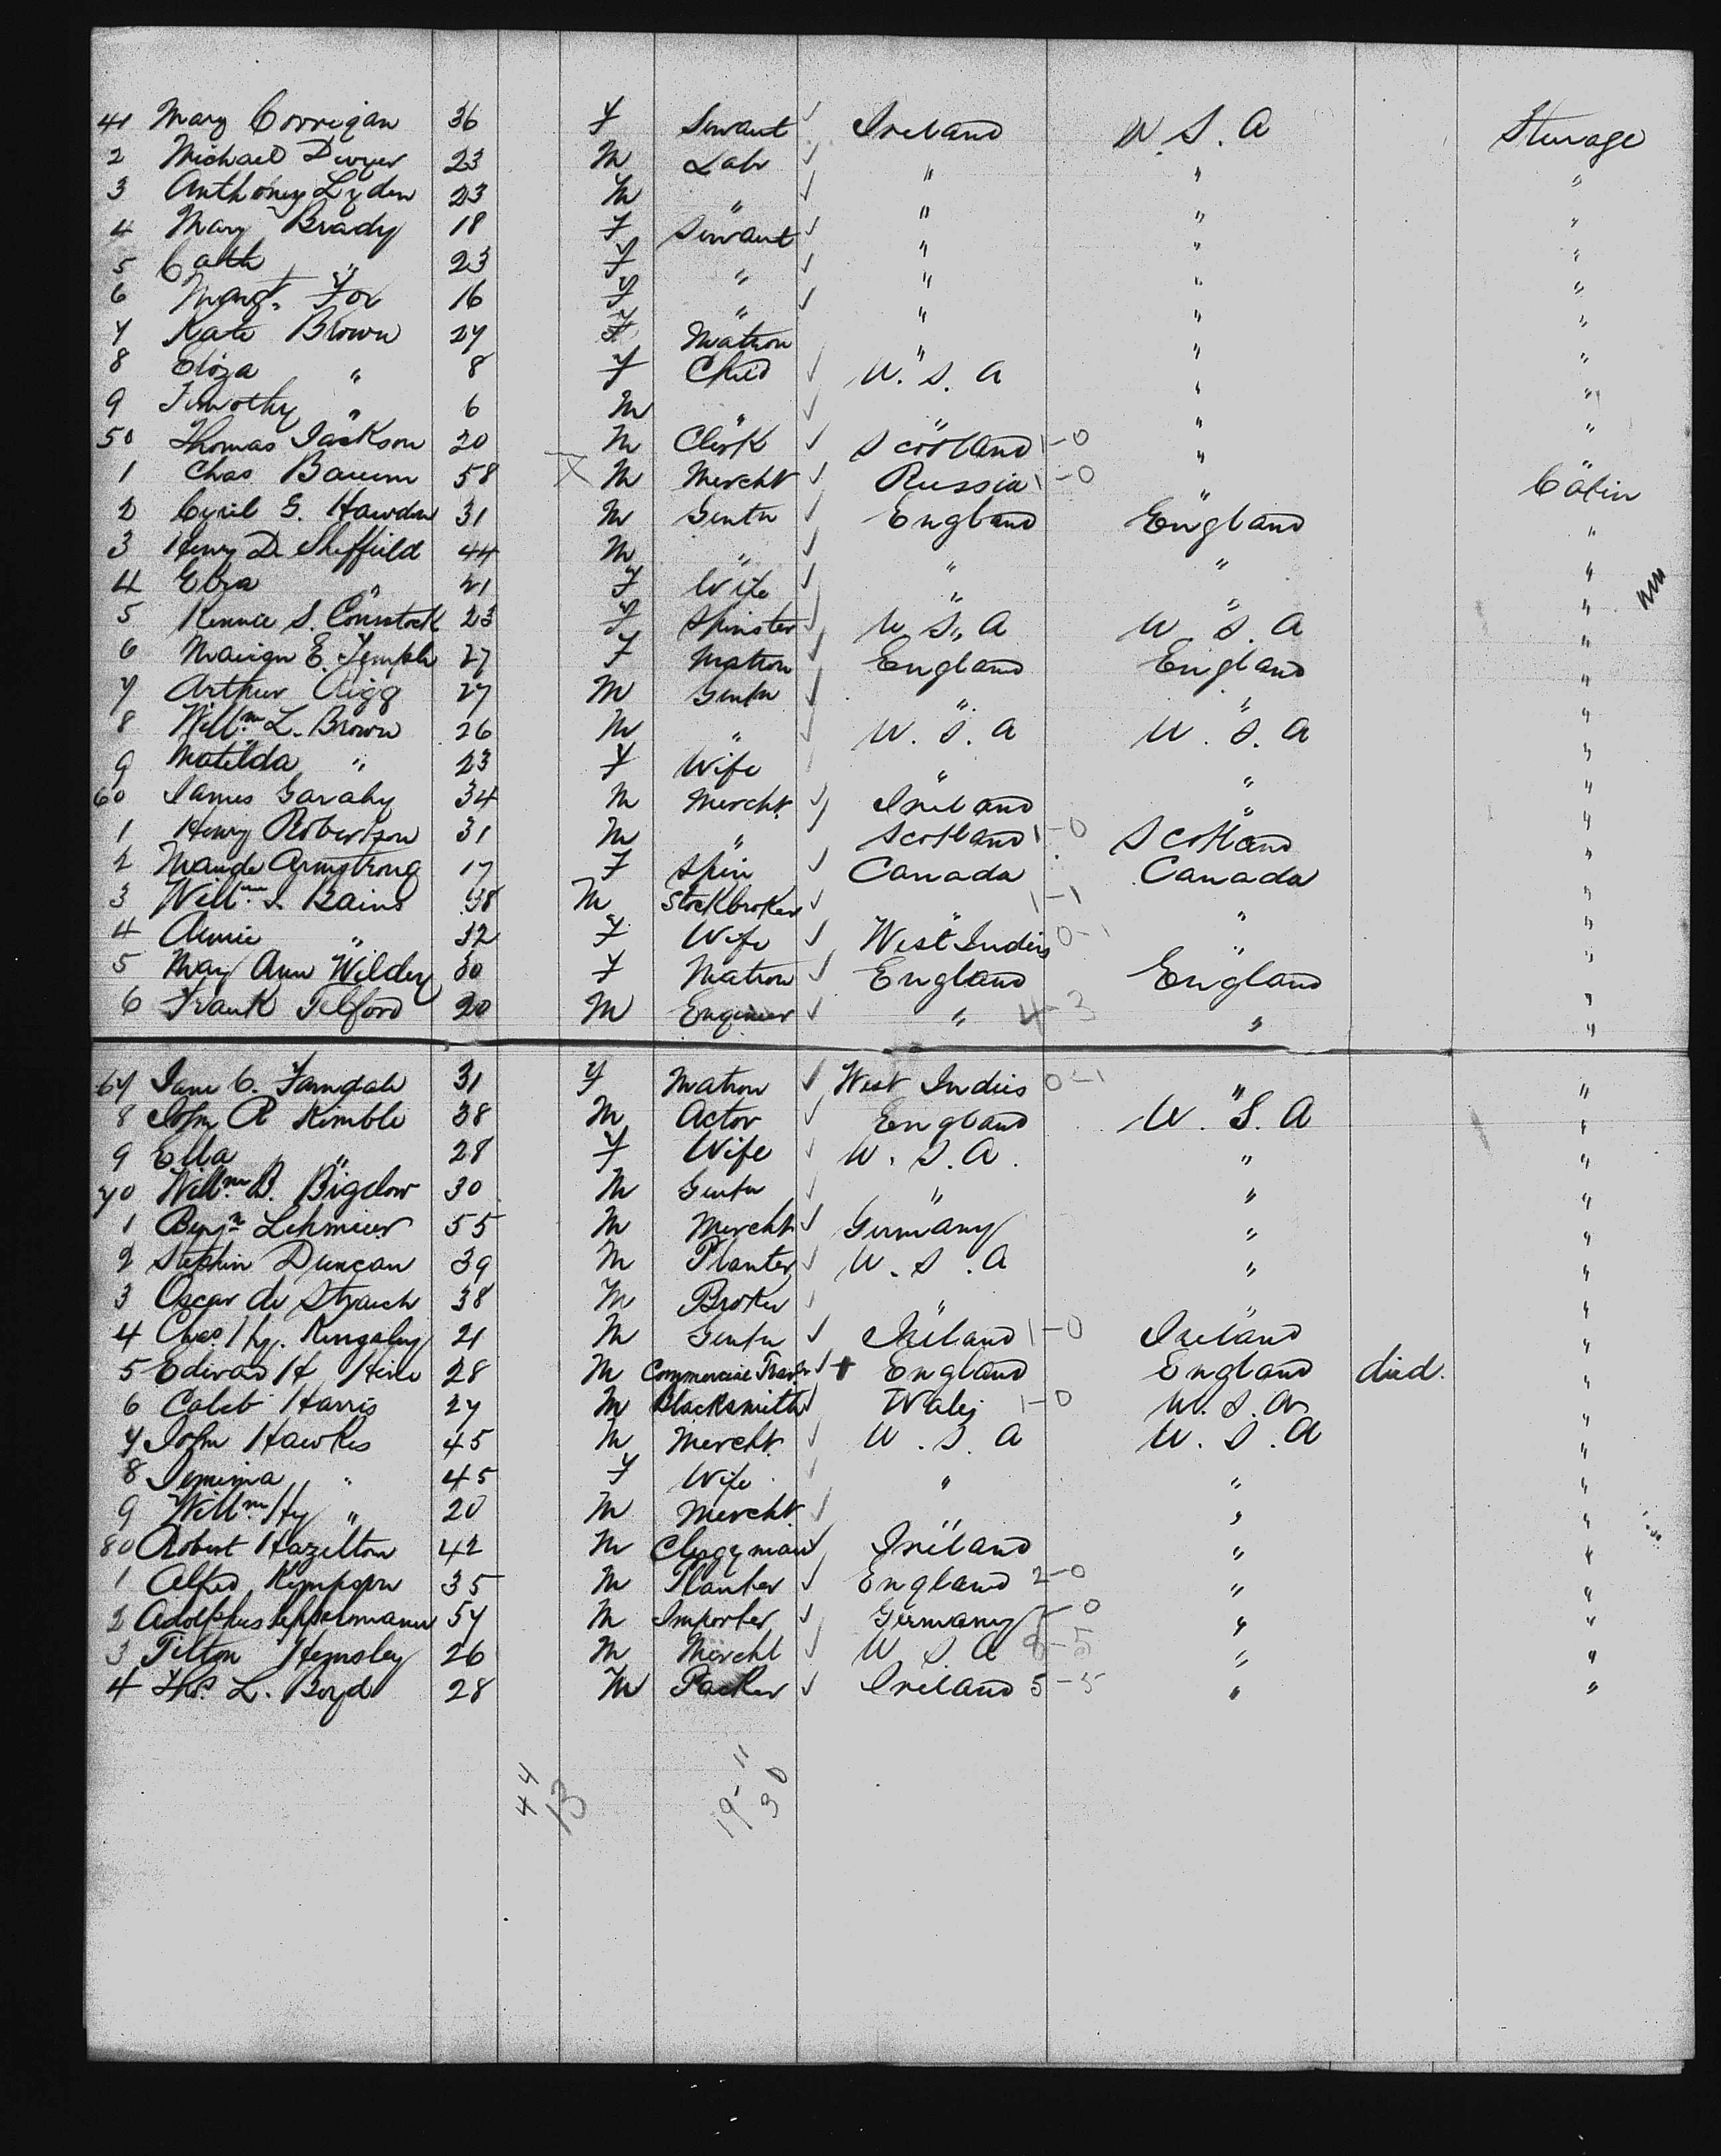 41 Mary Corrigan 36 F Servant ✓ Ireland U.S.A Steerage
2 Michael Dwyer 23 M Labr ✓ " " "
3 Anthoney Lyden 23 M " ✓ " " "
4 Mary Brady 18 F Servant ✓ " " "
5 Cath " 23 F " ✓ " " "
6 Margt. Fox 16 F " ✓ " " "
7 Kate Brown 27 F Matron " " "
8 Eliza " 8 F Child ✓ U.S.A " "
9 Timothy " 6 M " ✓ " " "
50 Thomas Jackson 20 M Clerk ✓ Scotland 1-0 " "
1 Chas 58 M Mercht ✓ Russia 1-0 " Cabin
2 Cyril G. Hawdon 31 M Gentn ✓ England England "
3 Henry D. Sheffield 44 M " ✓ " " "
4 Eliza " 21 F Wife ✓ " " "
5 S. Comstock 23 F Spinster ✓ U.S.A U.S.A "
6 E. Temple 27 F Matron ✓ England England "
7 Arthur Rigg 27 M Gentn ✓ " " "
8 Willm L. Brown 26 M " ✓ U.S.A U.S.A "
9 Matilda " 23 F Wife " " "
60 James Garahy 34 M Mercht. ✓ Ireland " "
1 Henry Robertson 31 M " Scotland 1-0 Scotland "
2 Maude Armstrong 17 F Spin ✓ Canada Canada "
3 Willm Bains 38 M Stockbroker ✓ " 1-1 " "
4 Annie " 32 F Wife ✓ West Indies 0-1 " "
5 Mary Ann Wildey 30 F Matron ✓ England England "
6 Frank Telford 20 M Engineer ✓ " 4-3 " "
67 Jane C. Farndale 31 F Matron ✓ West Indies 0-1 " "
8 John R Kemble 38 M Actor ✓ England U.S.A "
9 Ella " 28 F Wife ✓ U.S.A. " "
70 Willm B. Bigelow 30 M Gentn ✓ " " "
1 Benjn Lehmeier 55 M Mercht ✓ Germany " "
2 Stephen Duncan 39 M Planter ✓ U.S.A " "
3 Oscar de 38 M Broker ✓ " " "
4 Chas. Hy. 21 M Gentn ✓ Ireland 1-0 Ireland "
5 Edward H 28 M Commercial Travr ✓ + England England died. "
6 Caleb Harris 27 M Blacksmith ✓ Wales 1-0 U.S.A "
7 John Hawkes 45 M Mercht ✓ U.S.A U.S.A "
8 Jemima " 45 F Wife ✓ " " "
9 Willm Hy " 20 M Mercht. ✓ " " "
80 Robert Hazelton 42 M Clergyman ✓ Ireland " "
1 Alfred 35 M Planter ✓ England 2-0 " "
2 Adolphus 57 M Importer ✓ Germany " "
3 Tilton Hemsley 26 M Mercht ✓ U S A " "
4 Thos. L. Boyd 28 M Packer ✓ Ireland 5-5 " "
44
13
19-11
30